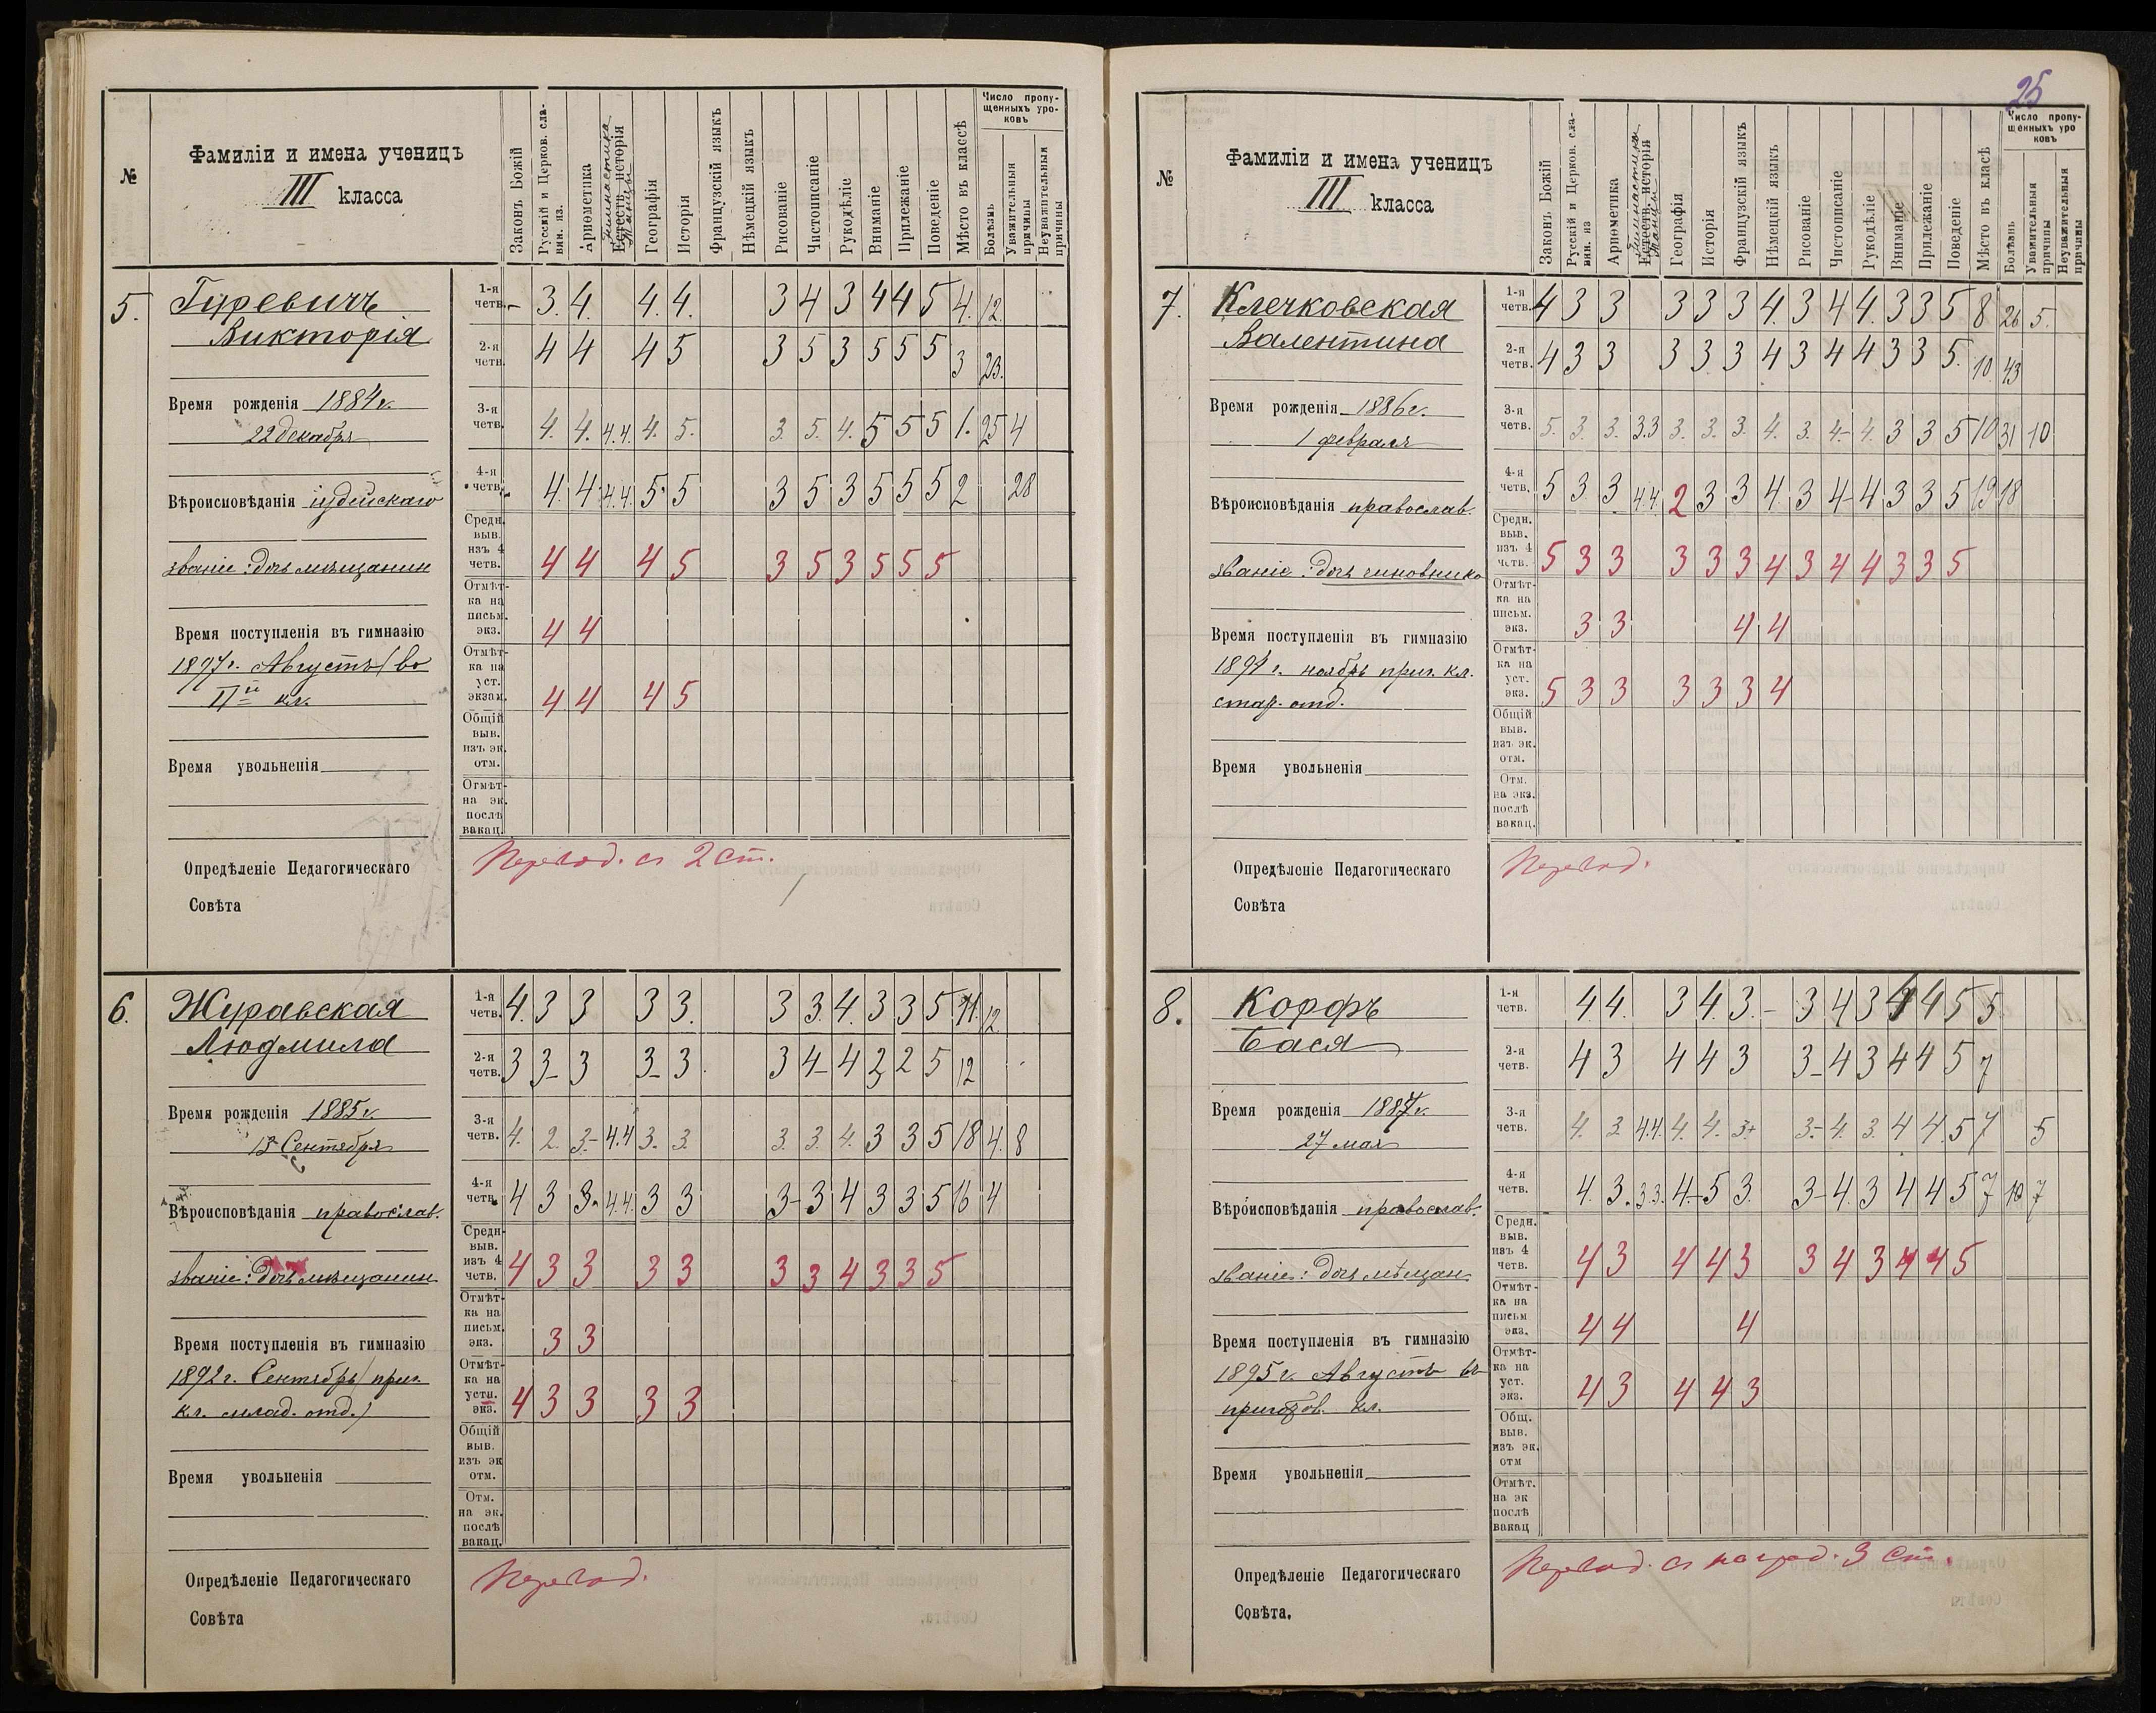 №
Фамиліи и имена ученицъ
III класса
Законъ Божій
Русскій и Церков. сла-
вян. яз.
Ариѳметика
Гимнастика
Естеств. исторія
Танцы
Географія
Исторія
Французскій языкъ
Нѣмецкій языкъ
Рисованіе
Чистописаніе
Рукодѣліе
Вниманіе
Прилежаніе
Поведеніе
Мѣсто въ классѣ
Число пропу-
щенныхъ уро-
ковъ
Болѣзнь
Уважительныя
причины
Неуважительныя
причины
5. Гуревичъ
Викторія
Время рожденія 1884 г.
22 декабря
Вѣроисповѣданія іудейскаго
званіе: дочь мѣщанин
Время поступленія въ гимназію
1897 г. Августъ (во
IIй кл.
Время увольненія
1-я четв. – 3. 4. 4. 4. 3 4 3 4 4 5 4. 12.
2-я четв. 4 4 4 5 3 5 3 5 5 5 3 23.
3-я четв. 4. 4. 4.4. 4. 5. 3. 5. 4. 5 5 5 1. 25 4
4-я четв. 4. 4 4.4. 5. 5 3 5 3 5 5 5 2 28
Средн.
выв.
изъ 4
четв. 4 4 4 5 3 5 3 5 5 5
Отмѣт-
ка на
письм.
экз. 4 4
Отмѣт-
ка на
уст.
экзам. 4 4 4 5
Общій
выв.
изъ эк.
отм.
Отмѣт-
на эк.
послѣ
вакац.
Опредѣленіе Педагогическаго
Совѣта
Перевод. съ 2 ст.
6. Журавская
Людмила
Время рожденія 1885 г.
13 Сентября
Вѣроисповѣданія православ.
званіе: дочь мѣщанин
Время поступленія въ гимназію
1892 г. Сентябрь (приг.
кл. млад. отд.)
Время увольненія
1-я четв. 4. 3 3 3 3. 3 3. 4. 3 3 5 11. 12.
2-я четв. 3 3– 3 3– 3 3 4– 4 2 2 5 12
3-я четв. 4. 2. 3– 4.4 3. 3. 3. 3. 4. 3 3 5 18 4. 8
4-я четв. 4 3 3. 4.4. 3 3 3– 3 4 3 3 5 16 4
Средн.
выв.
изъ 4
четв. 4 3 3 3 3 3 3 4 3 3 5
Отмѣт-
ка на
письм.
экз. 3 3
Отмѣт-
ка на
устн.
экз. 4 3 3 3 3
Общій
выв.
изъ эк
отм.
Отм.
на эк.
послѣ
вакац.
Опредѣленіе Педагогическаго
Совѣта
Перевод.
25
№
Фамиліи и имена ученицъ
III класса
Законъ Божій
Русскій и Церков. сла-
вян. яз.
Ариѳметика
Гимнастика
Естеств. исторія
Танцы
Географія
Исторія
Французскій языкъ
Нѣмецкій языкъ
Рисованіе
Чистописаніе
Рукодѣліе
Вниманіе
Прилежаніе
Поведеніе
Мѣсто въ классѣ
Число пропу-
щенныхъ уро
ковъ
Болѣзнь
Уважительныя
причины
Неуважительныя
причины
7. Клечковская
Валентина
Время рожденія 1886 г.
1 февраля
Вѣроисповѣданія православ.
званіе: дочь чиновника
Время поступленія въ гимназію
1894 г. ноябрь приг. кл.
стар. отд.
Время увольненія
1-я четв. 4 3 3 3 3 3 4. 3 4 4. 3 3 5 8 26 5.
2-я четв. 4 3 3 3 3 3 4 3 4 4 3 3 5. 10. 43
3-я четв. 5. 3. 3. 3.3 3. 3. 3. 4. 3. 4– 4. 3 3 5 10 31 10
4-я четв. 5 3. 3 4.4. 2 3 3 4 3 4– 4 3 3 5 19 18
Средн.
выв.
изъ 4
четв. 5 3 3 3 3 3 4 3 4 4 3 3 5
Отмѣт-
ка на
письм.
экз. 3 3 4 4
Отмѣт-
ка на
уст.
экз. 5 3 3 3 3 3 4
Общій
выв.
изъ эк.
отм.
Отм.
на экз.
послѣ
вакац.
Опредѣленіе Педагогическаго
Совѣта
Перевод.
8. Корфъ
Бася
Время рожденія 1887 г.
27 мая
Вѣроисповѣданія православ.
званіе: дочь мѣщан.
Время поступленія въ гимназію
1895 г. Августъ въ
приготов. кл.
Время увольненія
1-я четв. 4. 4. 3 4. 3. – 3 4 3 4 4 5 5
2-я четв. 4 3 4 4 3 3– 4 3 4 4 5 7
3-я четв. 4. 3. 4.4. 4. 4. 3+ 3– 4. 3. 4 4. 5 7 5
4-я четв. 4. 3. 3.3. 4– 5 3. 3– 4. 3 4 4 5 7 10 7
Средн.
выв.
изъ 4
четв. 4 3 4 4 3 3 4 3 4 4 5
Отмѣт-
ка на
письм
экз. 4 4 4
Отмѣт-
ка на
уст.
экз. 4 3 4 4 3
Общ.
выв.
изъ эк.
отм
Отмѣт.
на эк
послѣ
вакац
Опредѣленіе Педагогическаго
Совѣта.
Перевод. съ наград. 3 ст.